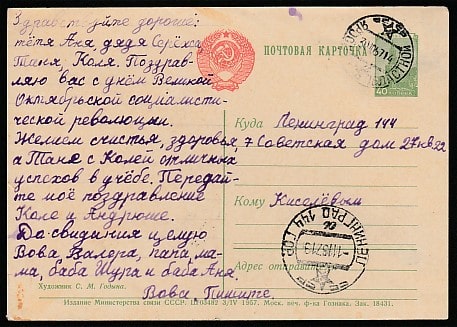 Здравствуйте дорогие:
тётя Аня дядя Серёжа
Таня, Коля. Поздрав-
ляю вас с днём Великой
Октябрьской социалисти-
ческой революции.
Желаем счастья, здоровья,
а Тане с Колей отличных
успехов в учёбе. Передай-
те моё поздравление
Коле и Андрюше.
До свидания целую
Вова Валера, папа, ма-
ма, баба Шура и баба Аня.
Вова Пишите.
Художник С. М. Годына.
ПОЧТОВАЯ КАРТОЧКА
40
Куда Ленинград 144
7 Советская дом 27 кв 22
Кому Киселёвым
Адрес отправителя
ЛЕНИНГРАД 144 ГОР.
Издание Министерства связи СССР. 3/IV 1957. Моск. печ. ф-ка Гознака. Зак. 18431.